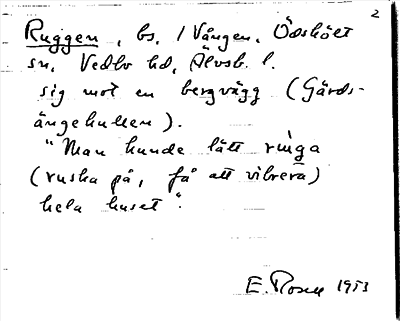 2
Ruggen, bs, / Vången, Ödskölt
sn, Vedbo hd, Älvsb. l.
sig mot en bergvägg (Gärds-
ängekullen).
"Man kunde lätt ringa
(ruska på, få att vibrera)
hela huset".
E. Rosell 1953